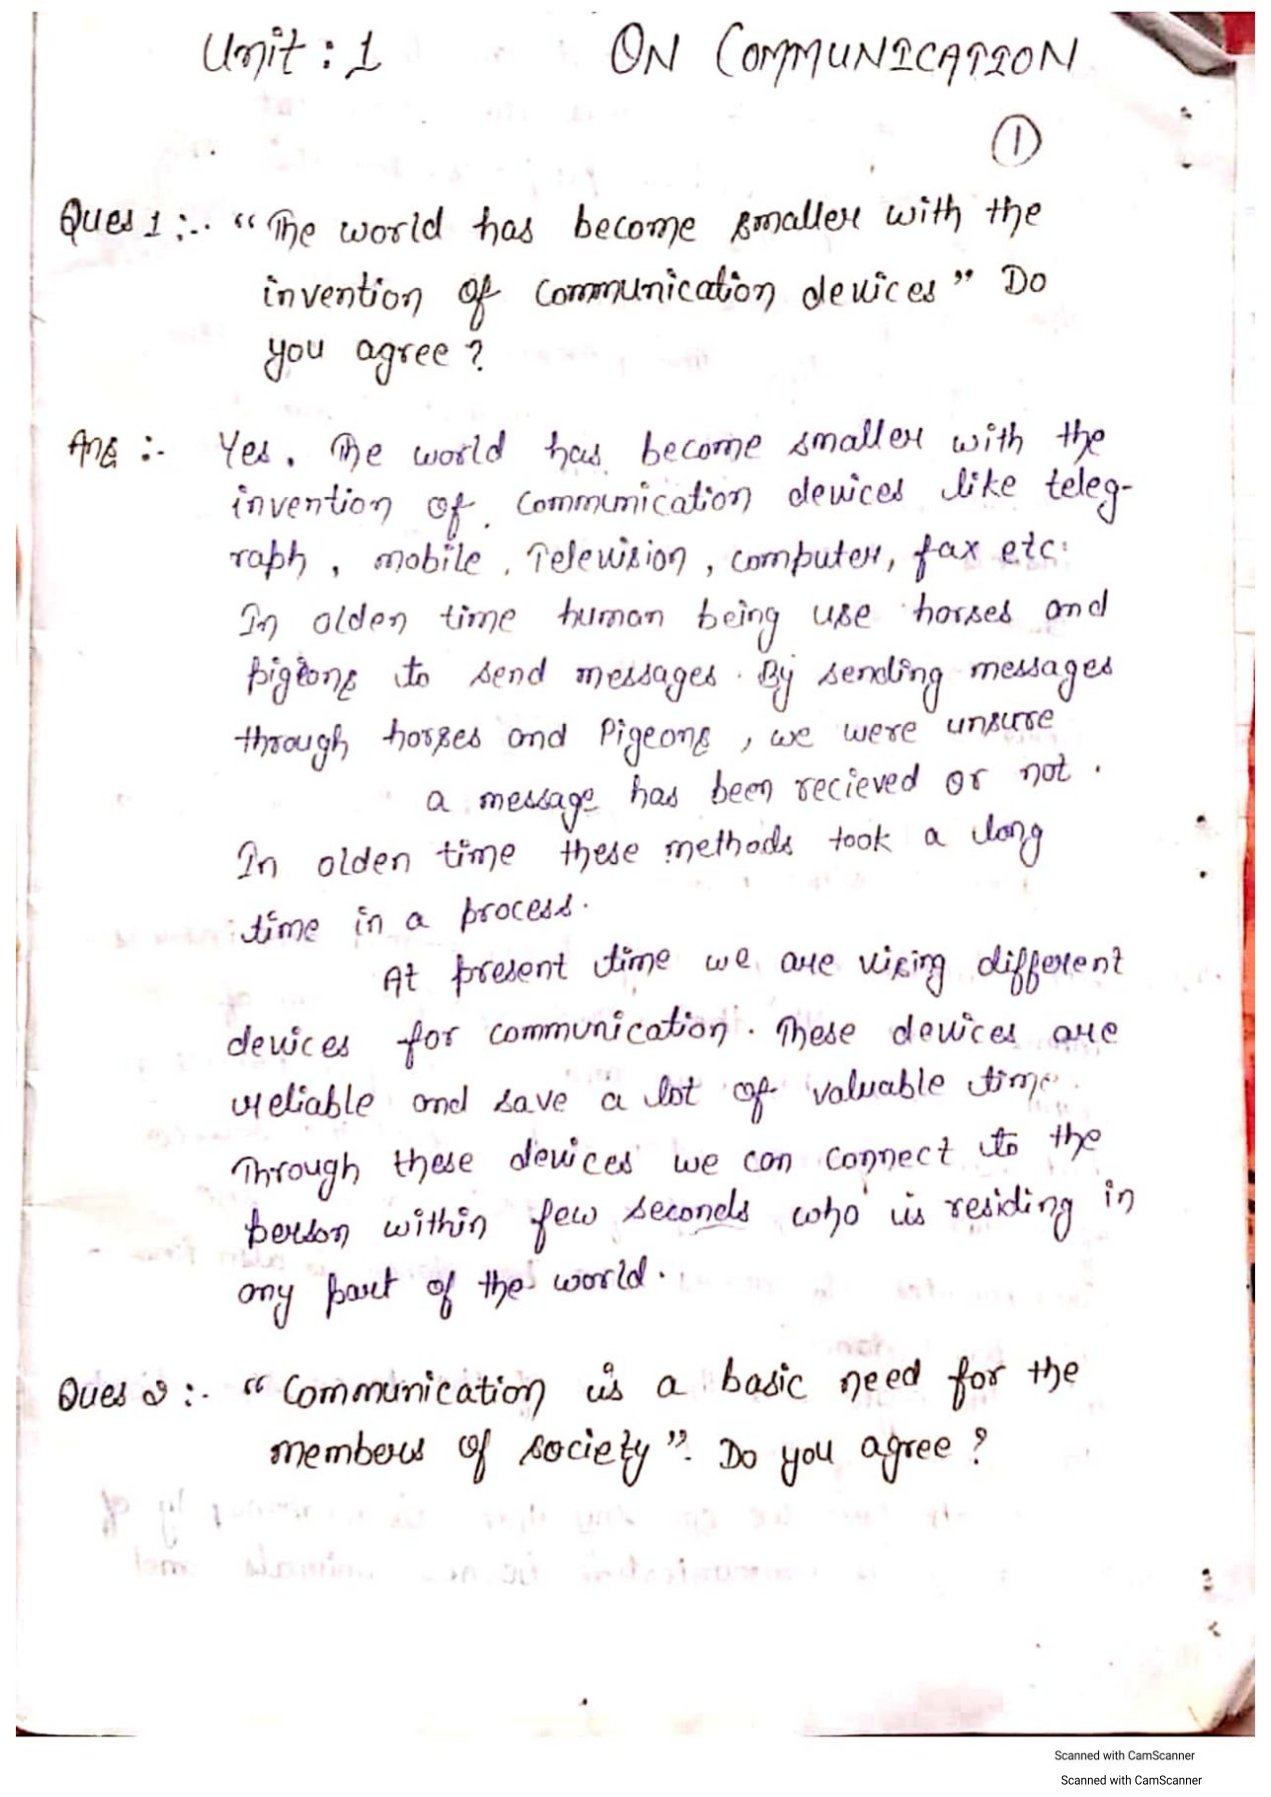 Unit : 1 ON COMMUNICATION
1
Ques 1 :- “The world has become smaller with the
invention of communication devices” Do
you agree ?
Ans :- Yes. The world has become smaller with the
invention of communication devices like teleg-
raph, mobile, Television, computer, fax etc.
In olden time human being use horses and
pigeons to send messages. By sending messages
through horses and Pigeons, we were unsure
a message has been recieved or not.
In olden time these methods took a long
time in a process.
At present time we are using different
devices for communication. These devices are
reliable and save a lot of valuable time.
Through these devices we can connect to the
person within few seconds who is residing in
any part of the world.
Ques 2 :- “Communication is a basic need for the
members of society”. Do you agree ?
Scanned with CamScanner
Scanned with CamScanner